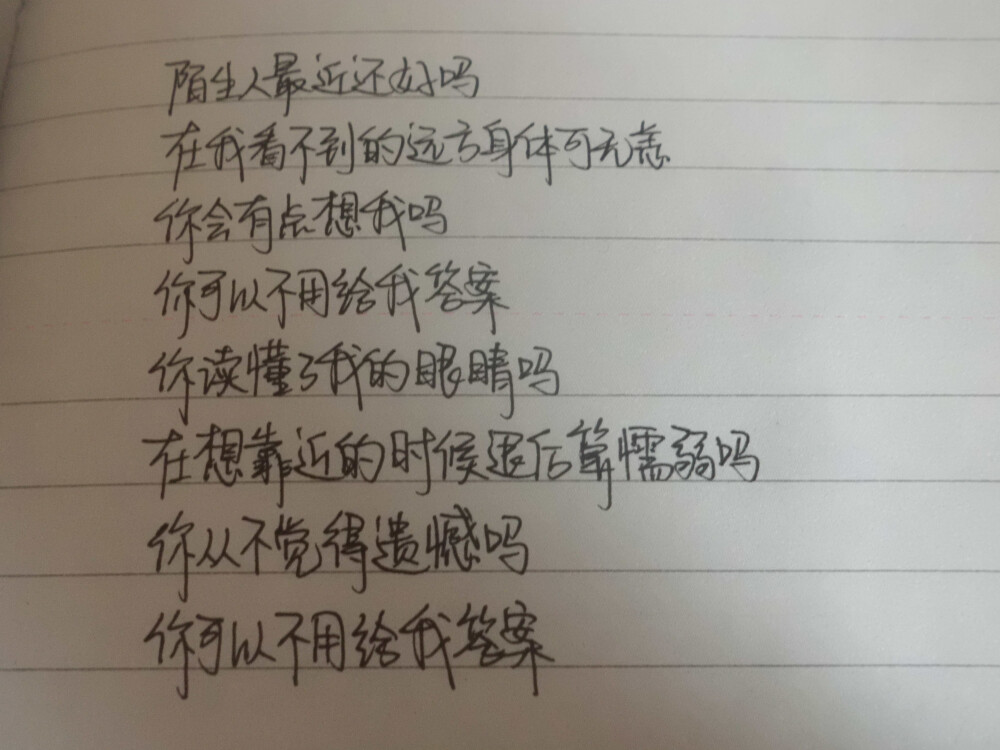 陌生人最近还好吗
在我看不到的远方身体可无恙
你会有点想我吗
你可以不用给我答案
你读懂了我的眼睛吗
在想靠近的时候退后算懦弱吗
你从不觉得遗憾吗
你可以不用给我答案